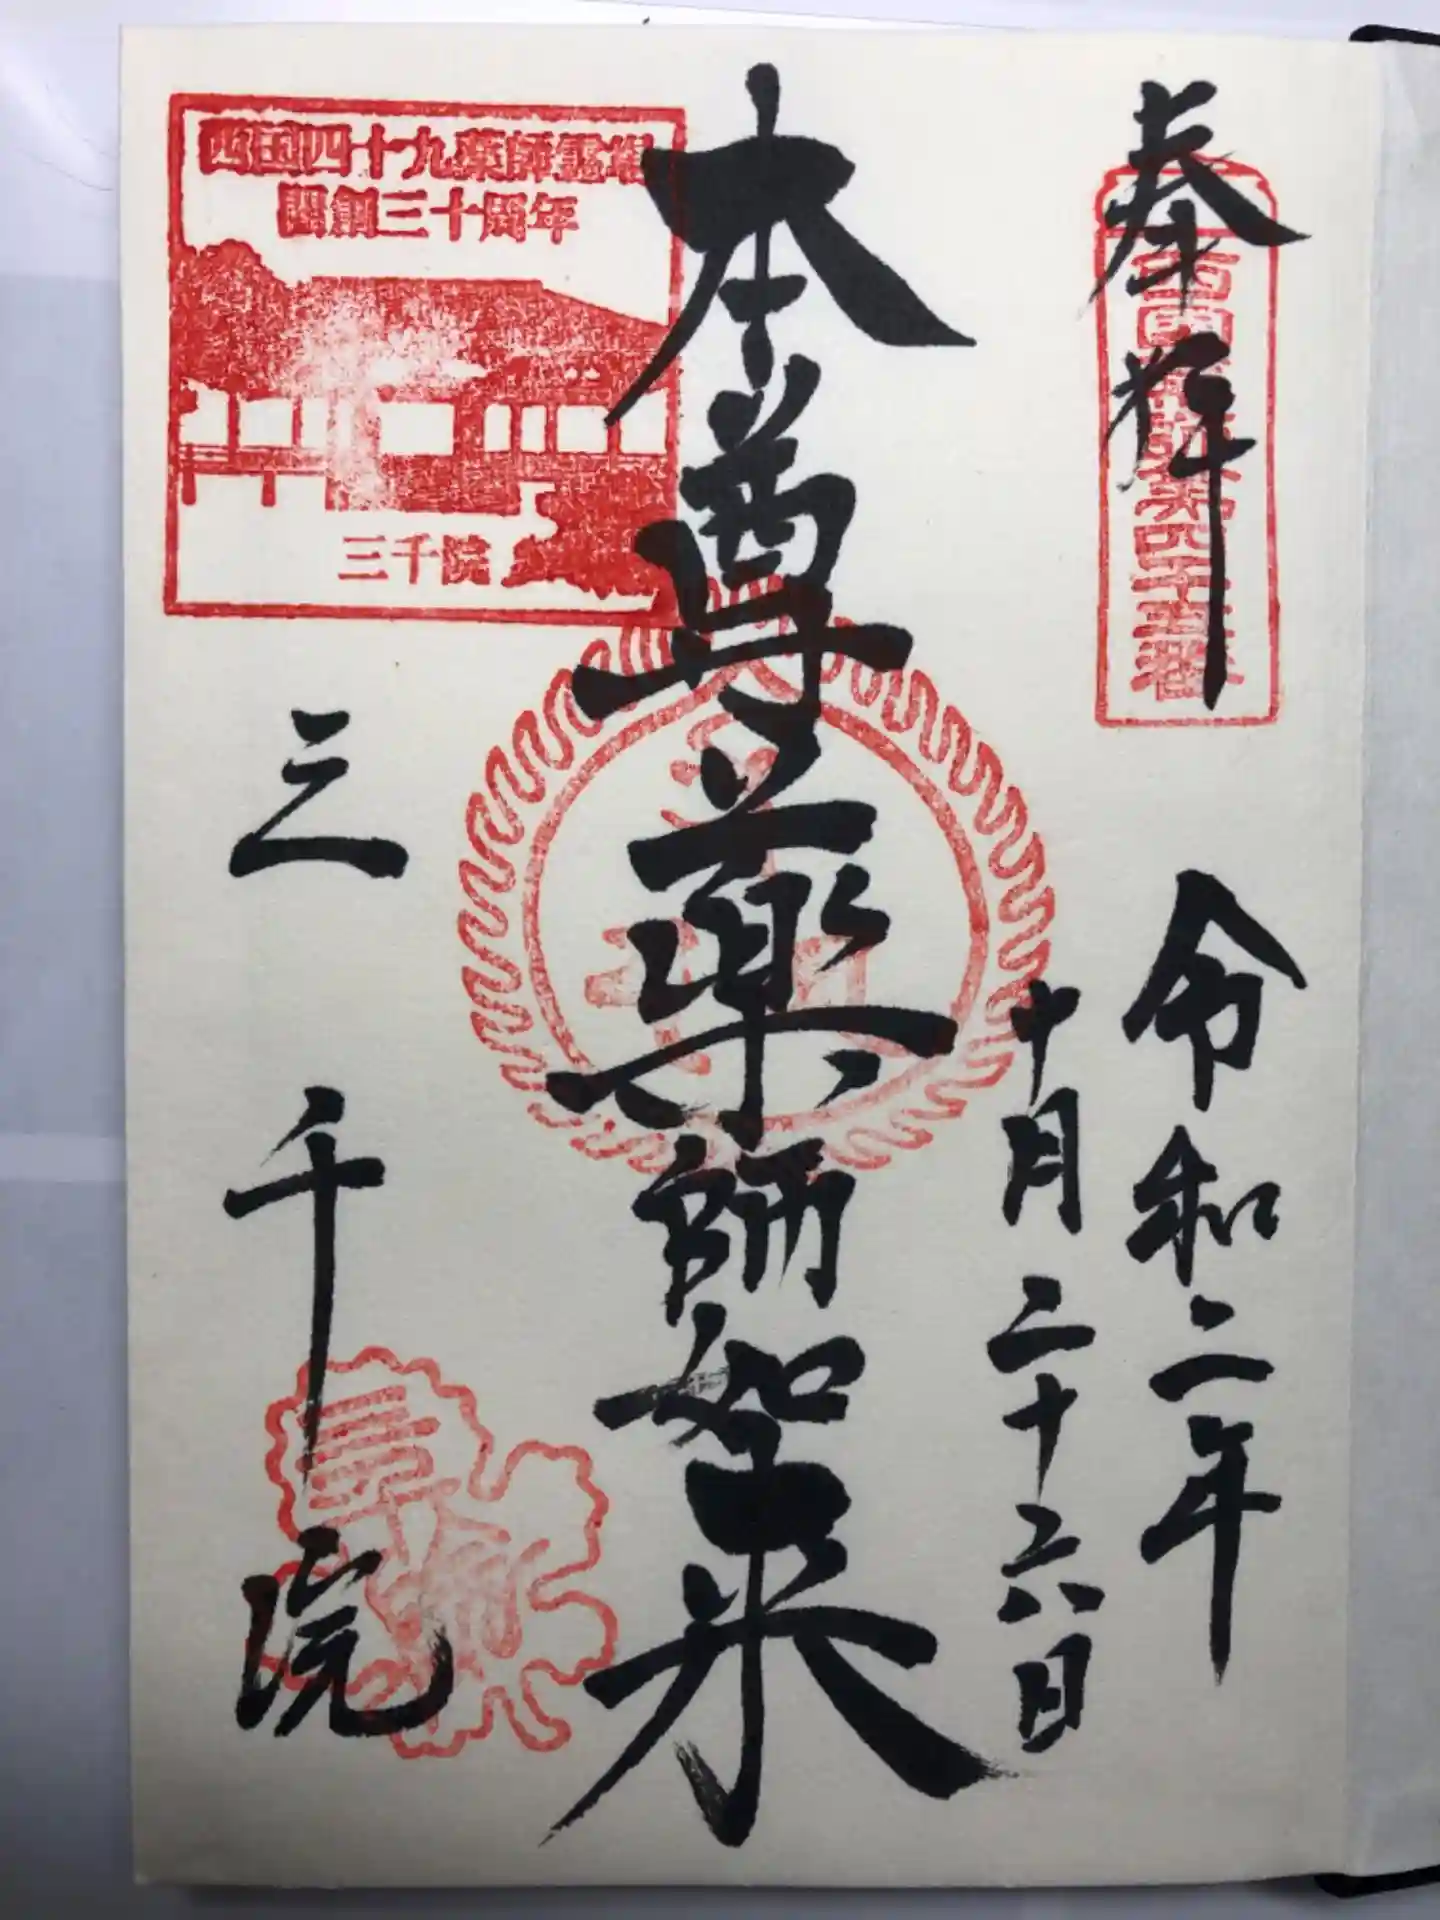 奉拝
西国薬師第四十五番
令和二年
十月二十六日
本尊薬師如来
西国四十九薬師霊場
開創三十周年
三千院
三千院